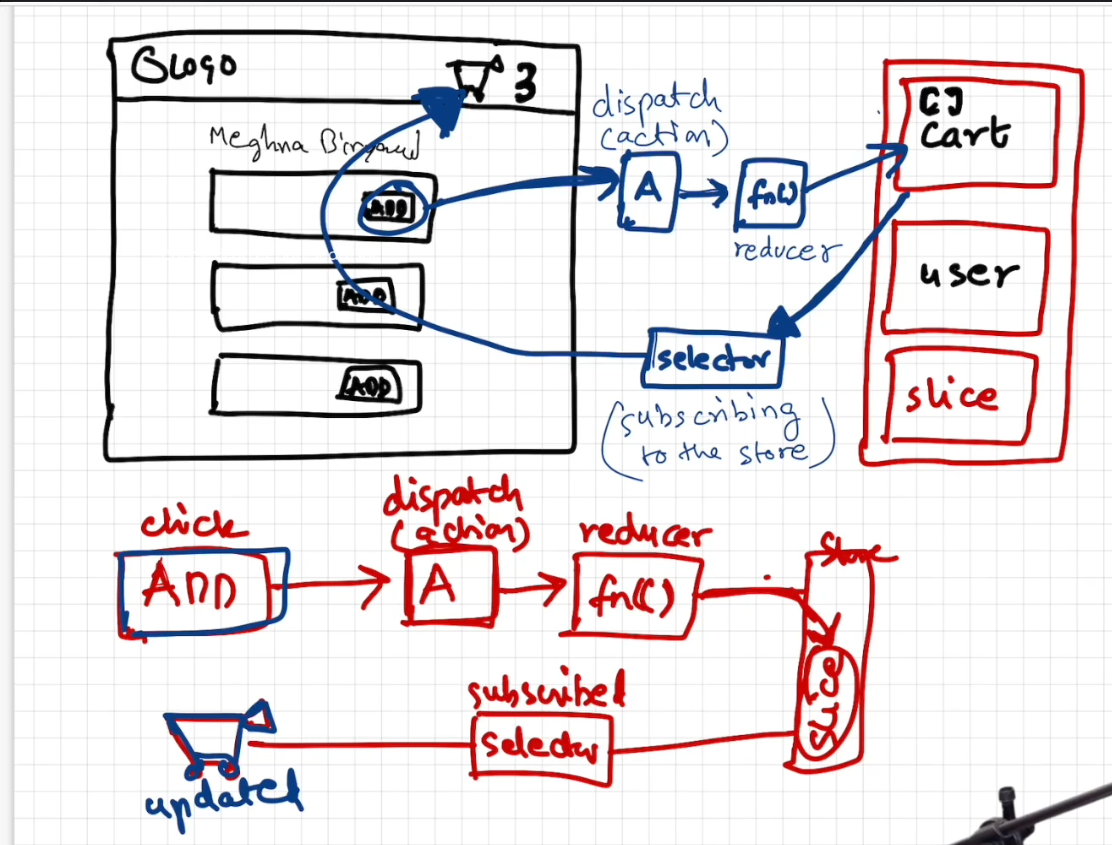 Logo
3
Meghna Biryani
ADD
ADD
ADD
dispatch
(action)
A
fn()
reducer
[]
cart
user
slice
selector
(subscribing
to the store)
click
ADD
dispatch
(action)
A
reducer
fn()
Store
slice
subscribed
selector
updated